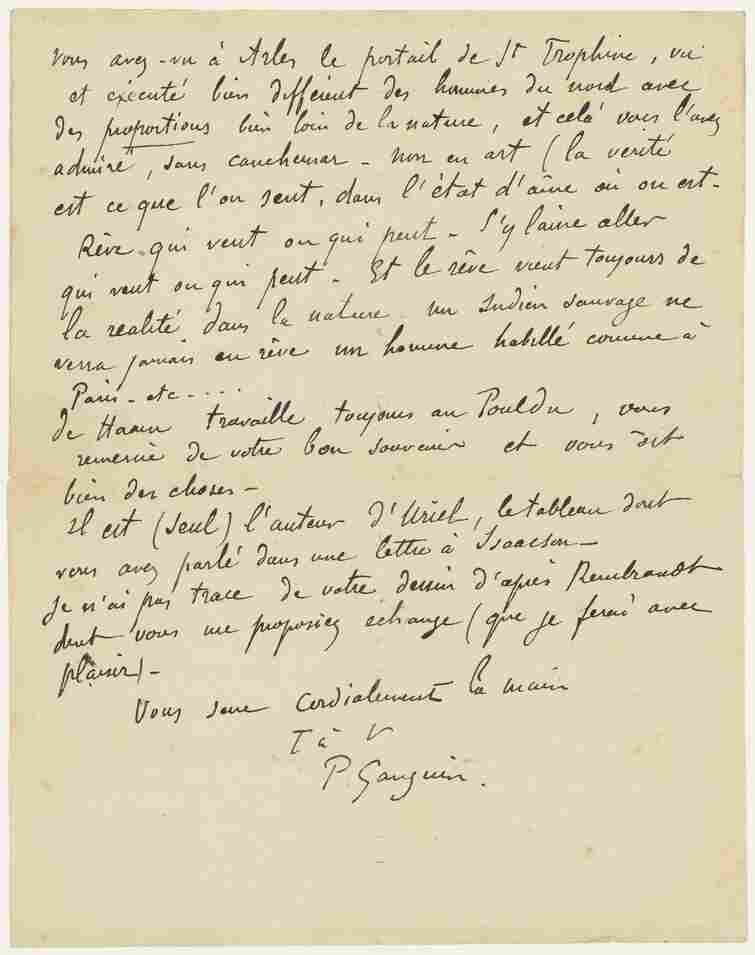 Vous avez-vu à Arles le portail de St Trophime, vu
et exécuté bien différent des hommes du nord avec
des proportions bien loin de la nature, et celà vous l'avez
admiré, sans cauchemar - Non en art (la verité
est ce que l'on sent, dans l'état d'âme où on est-
Rêve qui veut ou qui peut - S'y laisse aller
qui veut ou qui peut - Et le rêve vient toujours de
la realité dans la nature - un Indien sauvage ne
verra jamais en rêve un homme habillé comme à
Paris - etc - ...
de Haan travaille toujours au Pouldu, vous
remercie de votre bon souvenir et vous dit
bien des choses -
Il est (seul) l'auteur d'Uriel, le tableau dont
vous avez parlé dans une lettre à Isaacson -
Je n'ai pas trace de votre dessin d'après Rembrandt
dont vous me proposiez echange (que je ferai avec
plaisir) -
Vous serre cordialement la main
T à V
P Gauguin.